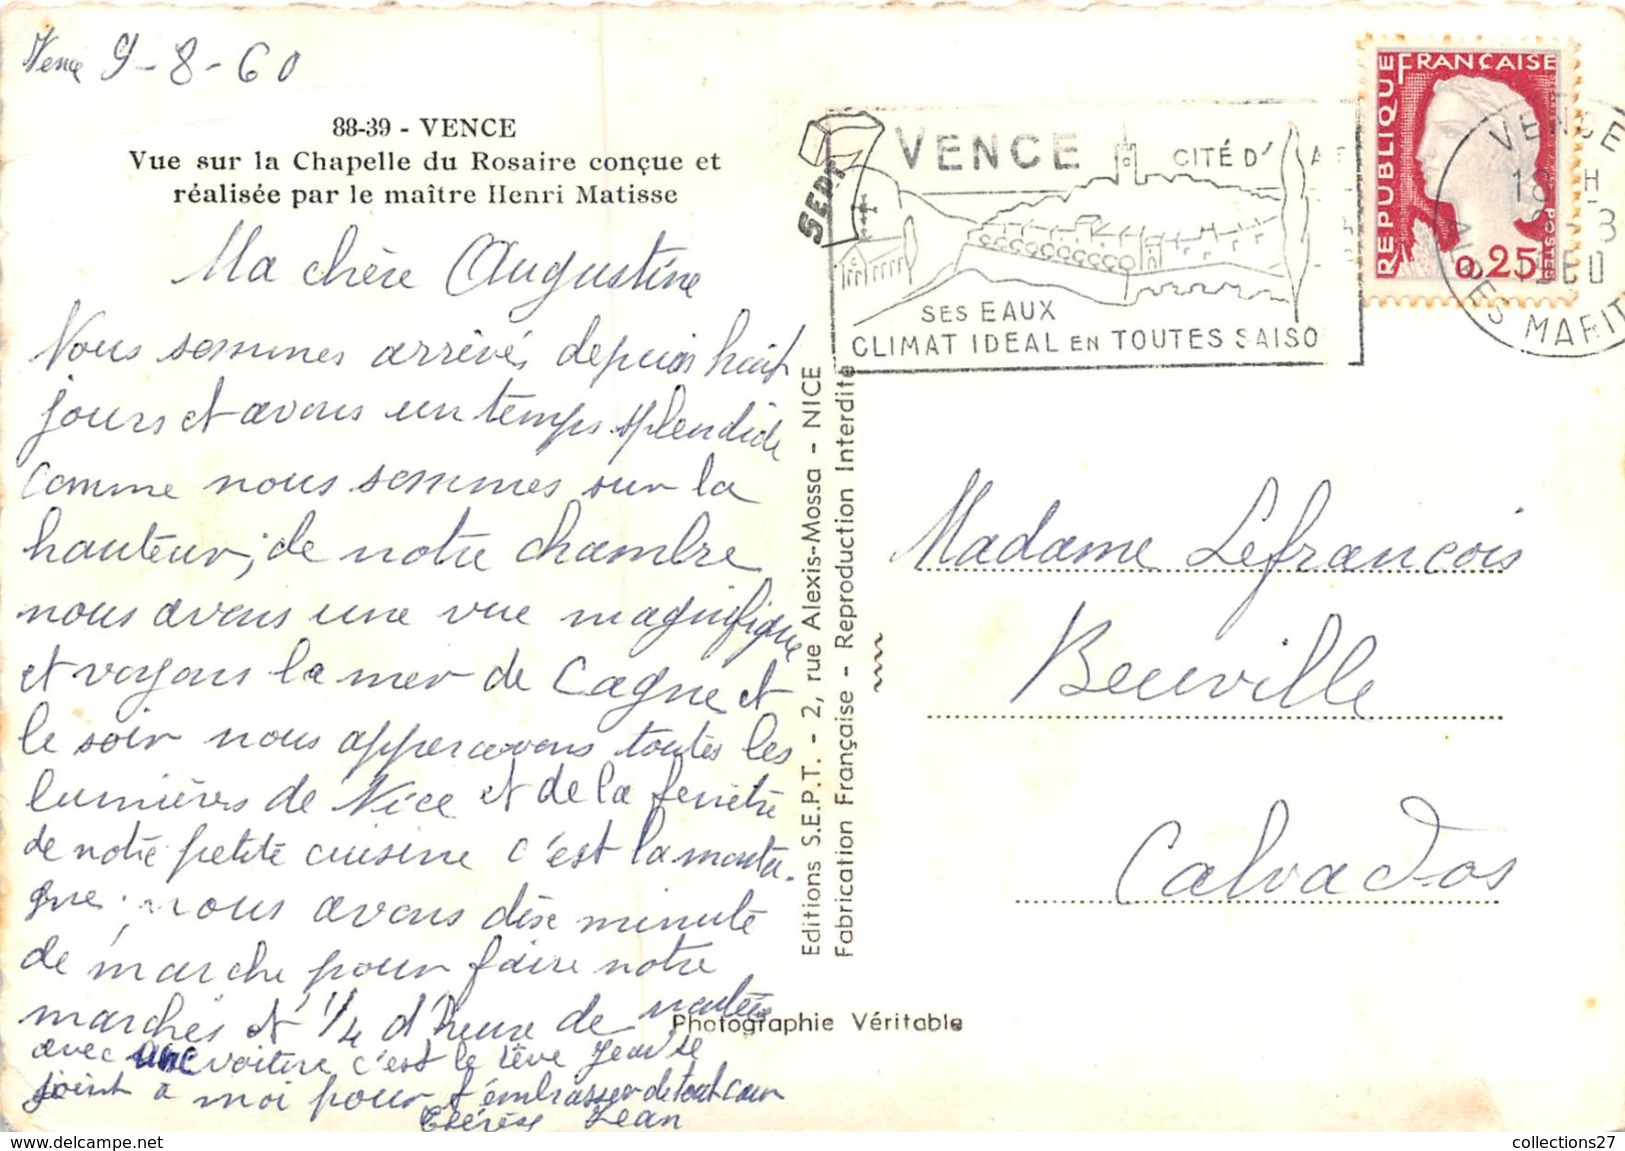 Vence 9-8-60
88-39 - VENCE
Vue sur la Chapelle du Rosaire conçue et
réalisée par le maître Henri Matisse
Ma chère Augustine
Nous sommes arrivés depuis huit
jours et avons un temps splendide
comme nous sommes sur la
hauteur, de notre chambre
nous avons une vue magnifique
et voyons la mer de Cagne et
le soir nous appercevons toutes les
lumières de Nice et de la fenêtre
de notre petite cuisine c'est la monta-
gne, nous avons dix minute
de marche pour faire notre
marchés et 1/4 d'heure de montées
avec une voiture c'est le rêve Jean se
joint à moi pour t'embrasser de tout cœur
Thérèse Jean
SEPT
VENCE
CITÉ D'
SES EAUX
CLIMAT IDEAL EN TOUTES SAISO
REPUBLIQUE FRANÇAISE
POSTES
0,25
VENCE
18 H
3
1960
ALPES MARIT
Editions S.E.P.T. - 2, rue Alexis-Mossa - NICE
Fabrication Française - Reproduction Interdite
Madame Lefrancois
Beuville
Calvados
Photographie Véritable
collections27